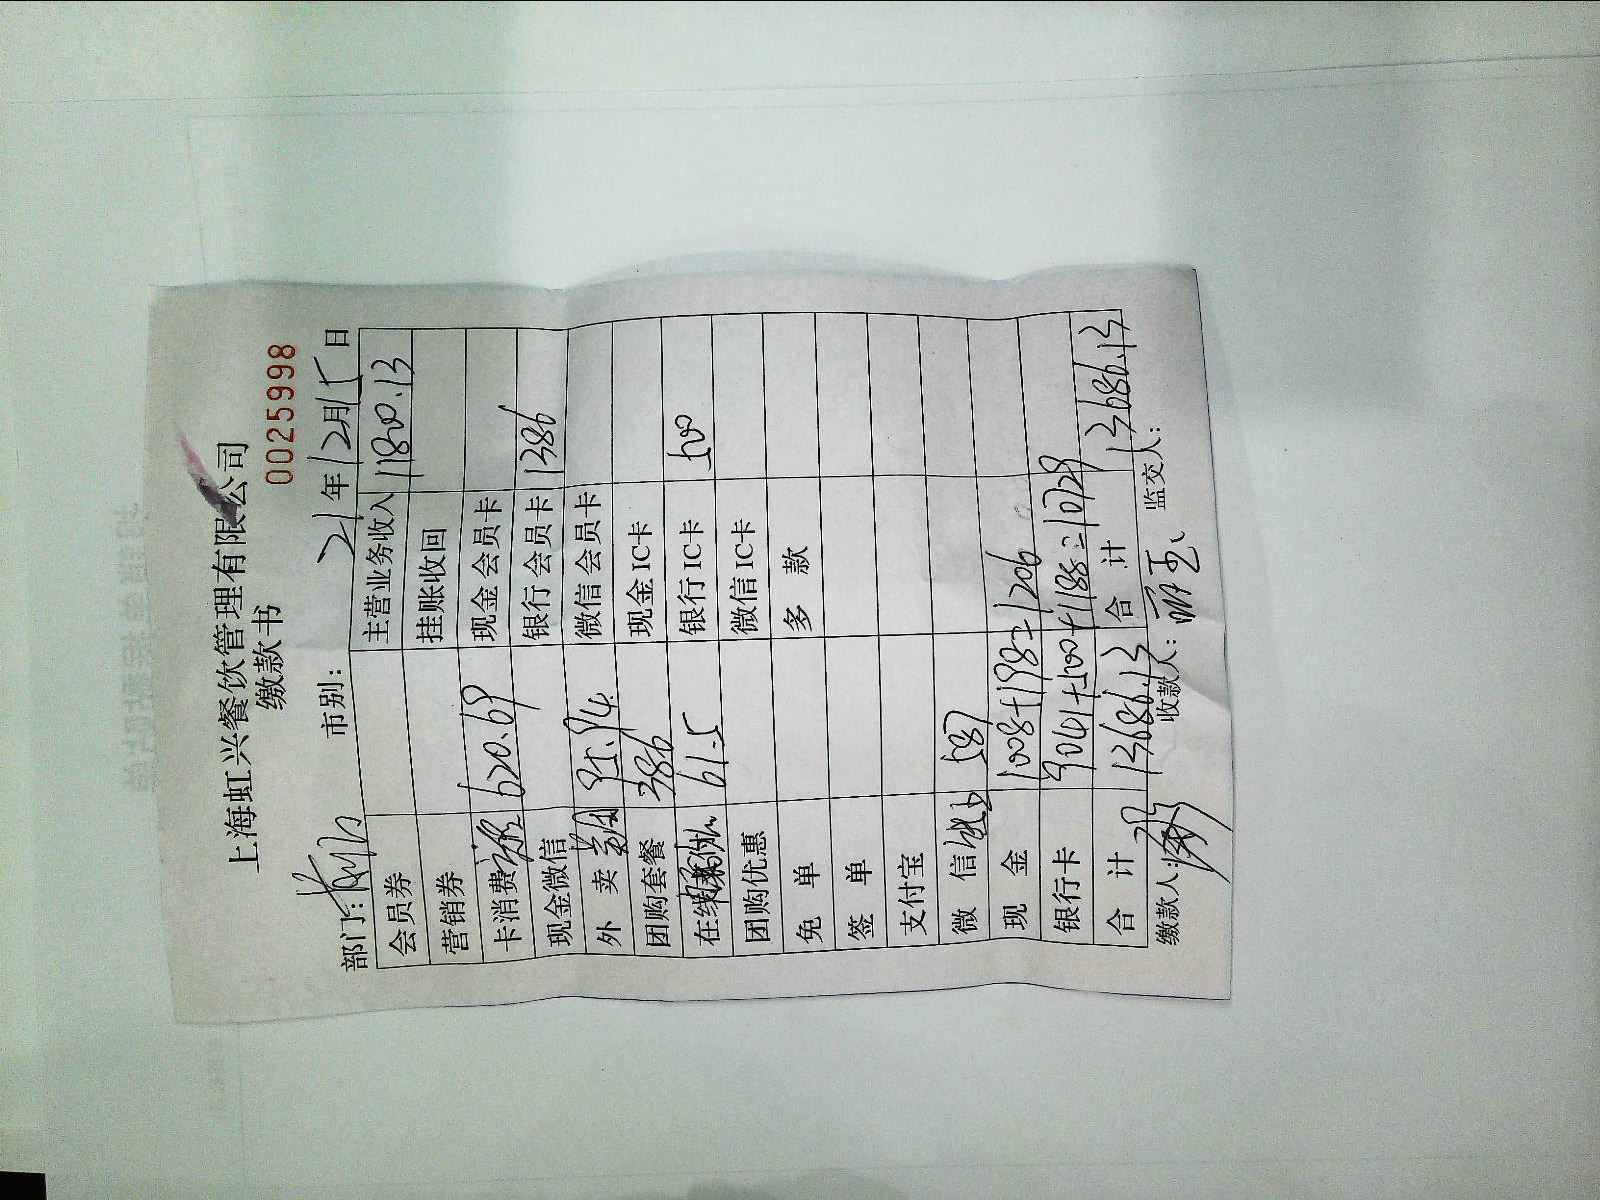 上海虹兴餐饮管理有限公司
缴款书
0025998
部门: 市别: 21年12月15日
会员券 主营业务收入 11800.13
营销券 挂账收回
卡消费 620.69 现金会员卡
现金微信 银行会员卡 1386
外卖 95.94 微信会员卡
团购套餐 386 现金IC卡
在线 61.5 银行IC卡 500
团购优惠 微信IC卡
免单 多款
签单
支付宝
微信 587
现金 1008+198=1206
银行卡 9041+500+1188=10729
合计 13686.13 合计 13686.13
缴款人: 收款人: 监交人: